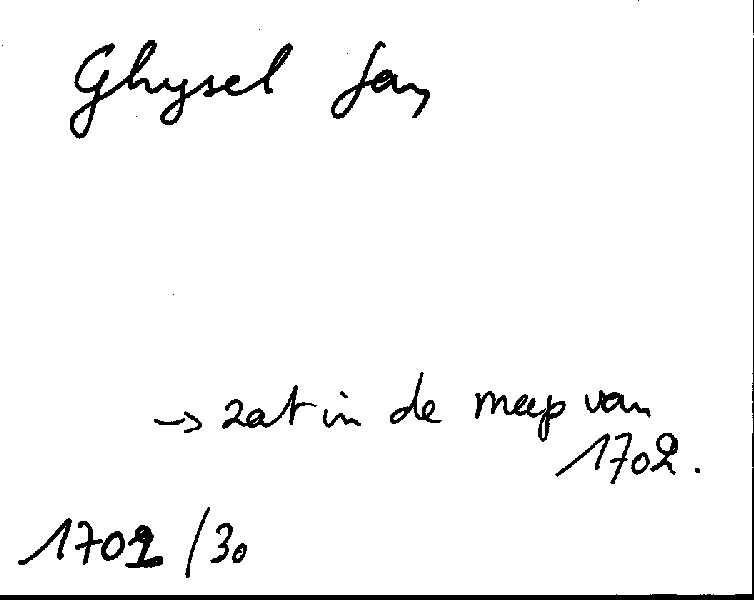 Ghysel Jan
→ zat in de meep van
1702.
1702 /30